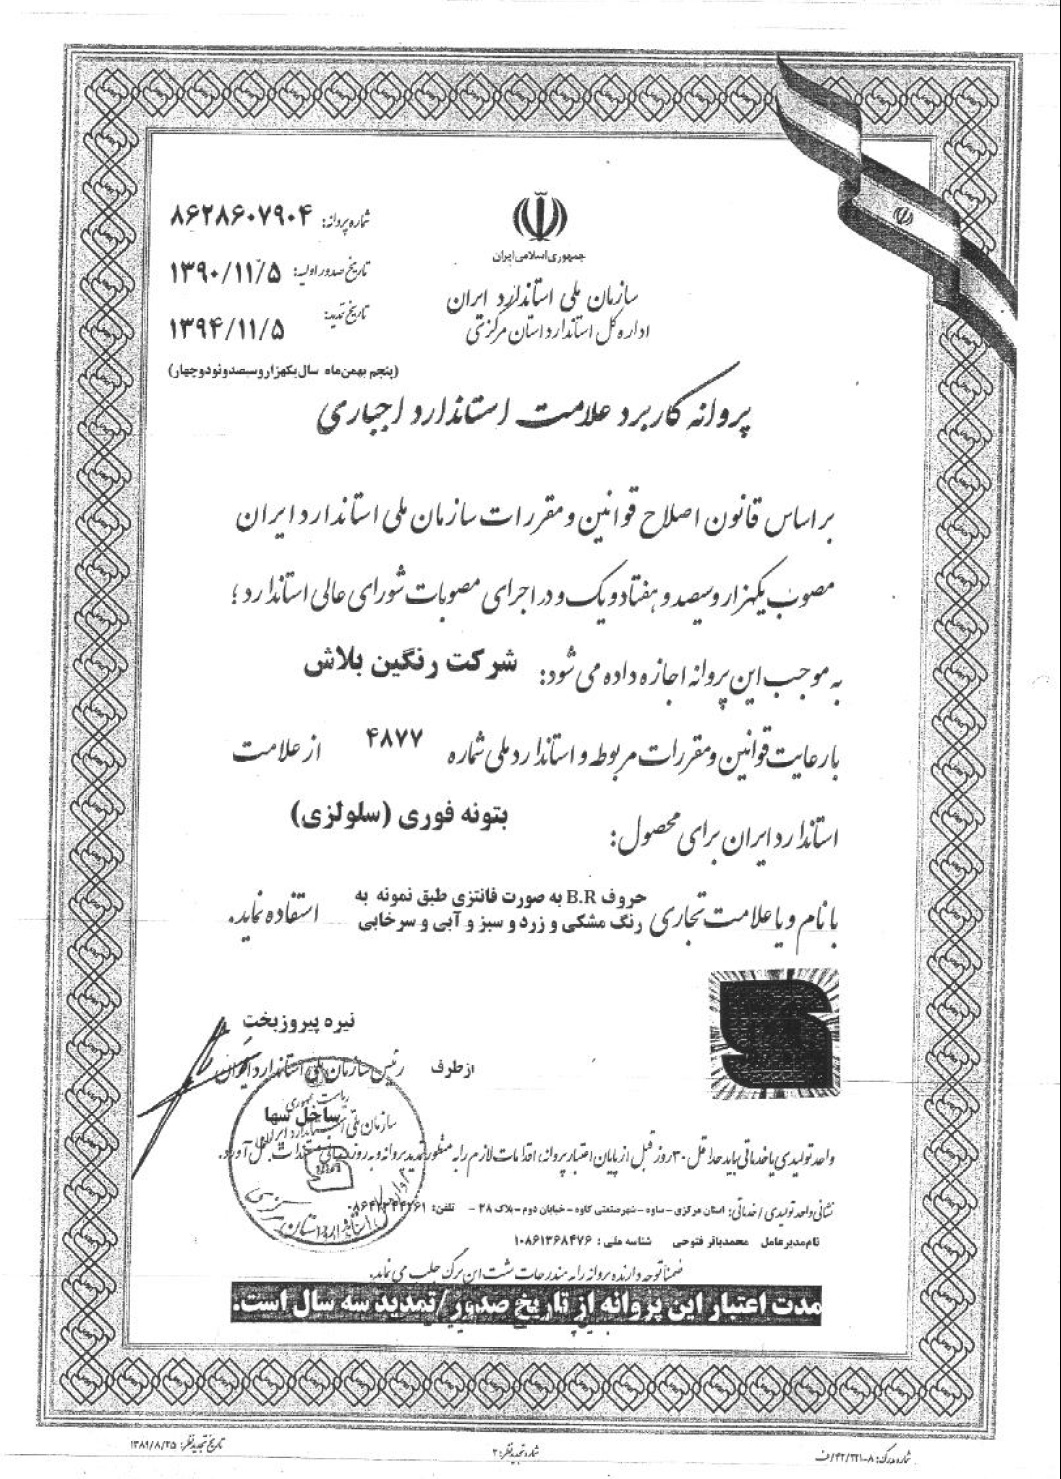 جمهوری اسلامی ایران
سازمان ملی استاندارد ایران
اداره کل استاندارد استان مرکزی
شماره پروانه: ۸۶۲۸۶۰۷۹۰۴
تاریخ صدور اولیه: ۱۳۹۰/۱۱/۵
تاریخ تمدید: ۱۳۹۴/۱۱/۵
(پنجم بهمن‌ماه سال یکهزار و سیصد و نود و چهار)
پروانه کاربرد علامت استاندارد اجباری
بر اساس قانون اصلاح قوانین و مقررات سازمان ملی استاندارد ایران
مصوب یکهزار و سیصد و هفتاد و یک و در اجرای مصوبات شورای عالی استاندارد؛
به موجب این پروانه اجازه داده می شود: شرکت رنگین بلاش
با رعایت قوانین و مقررات مربوط و استاندارد ملی شماره ۴۸۷۷ از علامت
استاندارد ایران برای محصول: بتونه فوری (سلولزی)
با نام و یا علامت تجاری حروف B.R به صورت فانتزی طبق نمونه به رنگ مشکی و زرد و سبز و آبی و سرخابی استفاده نماید.
نیره پیروزبخت
رئیس سازمان ملی استاندارد ایران
از طرف
ریاست جمهوری
سازمان ملی استاندارد ایران
واحد تولیدی یا خدماتی باید حداقل ۳۰ روز قبل از پایان اعتبار پروانه، اقدامات لازم را به منظور تمدید پروانه و به روز رسانی مستندات بعمل آورد.
نشانی واحد تولیدی / خدماتی: استان مرکزی - ساوه - شهرصنعتی کاوه - خیابان دوم - پلاک ۲۸ - تلفن:
نام مدیر عامل محمدباقر فتوحی شناسه ملی : ۱۰۸۶۱۳۶۸۴۷۶
ضمناً توجه دارنده پروانه را به مندرجات پشت این برگ جلب می نماید.
مدت اعتبار این پروانه از تاریخ صدور/تمدید سه سال است.
شماره مدرک: ف/۴۲/۲۲۱-۰۸
شماره تجدید نظر: ۲
تاریخ تجدید نظر: ۱۳۸۹/۸/۲۵